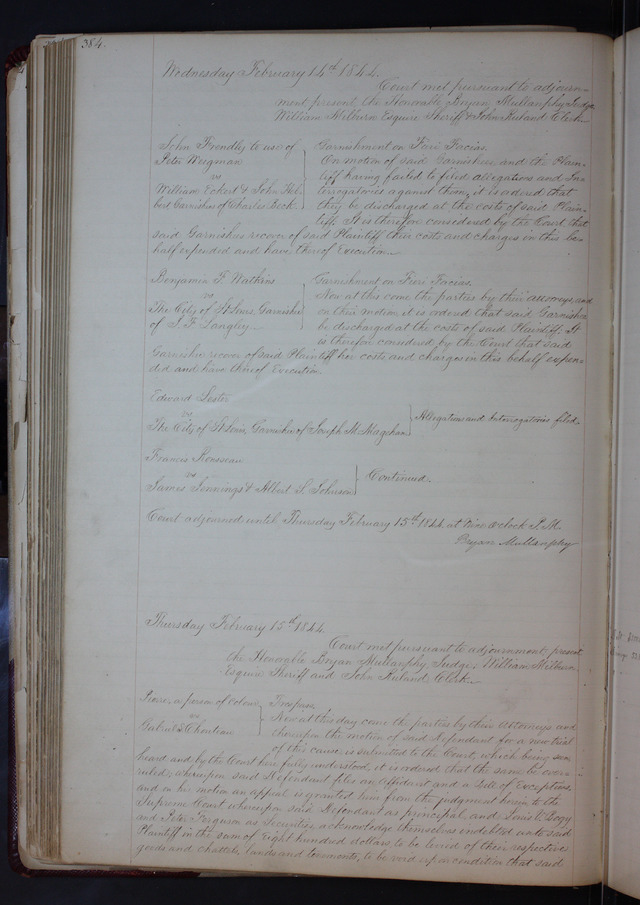 384.
Wednesday February 14th 1844.
Court met pursuant to adjourn-
ment present the Honorable Bryan Mullanphy Judge
William Milburn Esquire Sheriff & John Ruland Clerk
John Trendly to use of
Peter Wegman
vs
William Eckert & John Hel-
bert Garnishees of Charles Beck.
Garnishment on Fieri Facias.
On motion of said Garnishees, and the Plain-
tiff having failed to filed allegations and In-
terrogatories against them, it is ordered that
they be discharged at the costs of said Plain-
tiff. It is therefore considered by the Court that
said Garnishees recover of said Plaintiff their costs and charges in this be-
half expended and have thereof Execution.
Benjamin F. Watkins
vs
The City of St Louis Garnishee
of S. F. Langley
Garnishment on Fieri Facias.
Now at this come the parties by their attorneys, and
on their motion it is ordered that said Garnishee
be discharged at the costs of said Plaintiff. It
is therefore considered by the Court that said
Garnishee recover of said Plaintiff her costs and charges in this behalf expen-
ded and have thereof Execution.
Edward Lester
vs
The City of St Louis, Garnishee of Joseph M. Magehan
Allegations and Interrogatories filed.
Francis Rousseau
vs
James Jennings & Albert S. Johnson
Continued.
Court adjourned until Thursday February 15th 1844 at o'clock P.M
Bryan Mullanphy
Thursday February 15th 1844.
Court met pursuant to adjournment present
the Honorable Bryan Mullanphy, Judge, William Milburn
Esquire Sheriff and John Ruland Clerk
Pierre, a person of Colour
vs
Gabriel S. Chouteau
Trespass.
Now at this day came the parties by their Attorneys and
thereupon the motion of said Defendant for a new trial
of this cause is submitted to the Court, which being seen
heard and by the Court here fully understood, it is ordered that the same be over-
ruled, whereupon said Defendant files an affidavit and a bill of Exceptions,
and on his motion an appeal is granted him from the judgment herein to the
Supreme Court whereupon said Defendant as principal, and Louis V. Bogy
and Peter Ferguson as Securities, acknowledge themselves indebted unto said
Plaintiff in the sum of Eight hundred dollars, to be levied of their respective
goods and chattels, lands and tenements, to be void upon condition that said